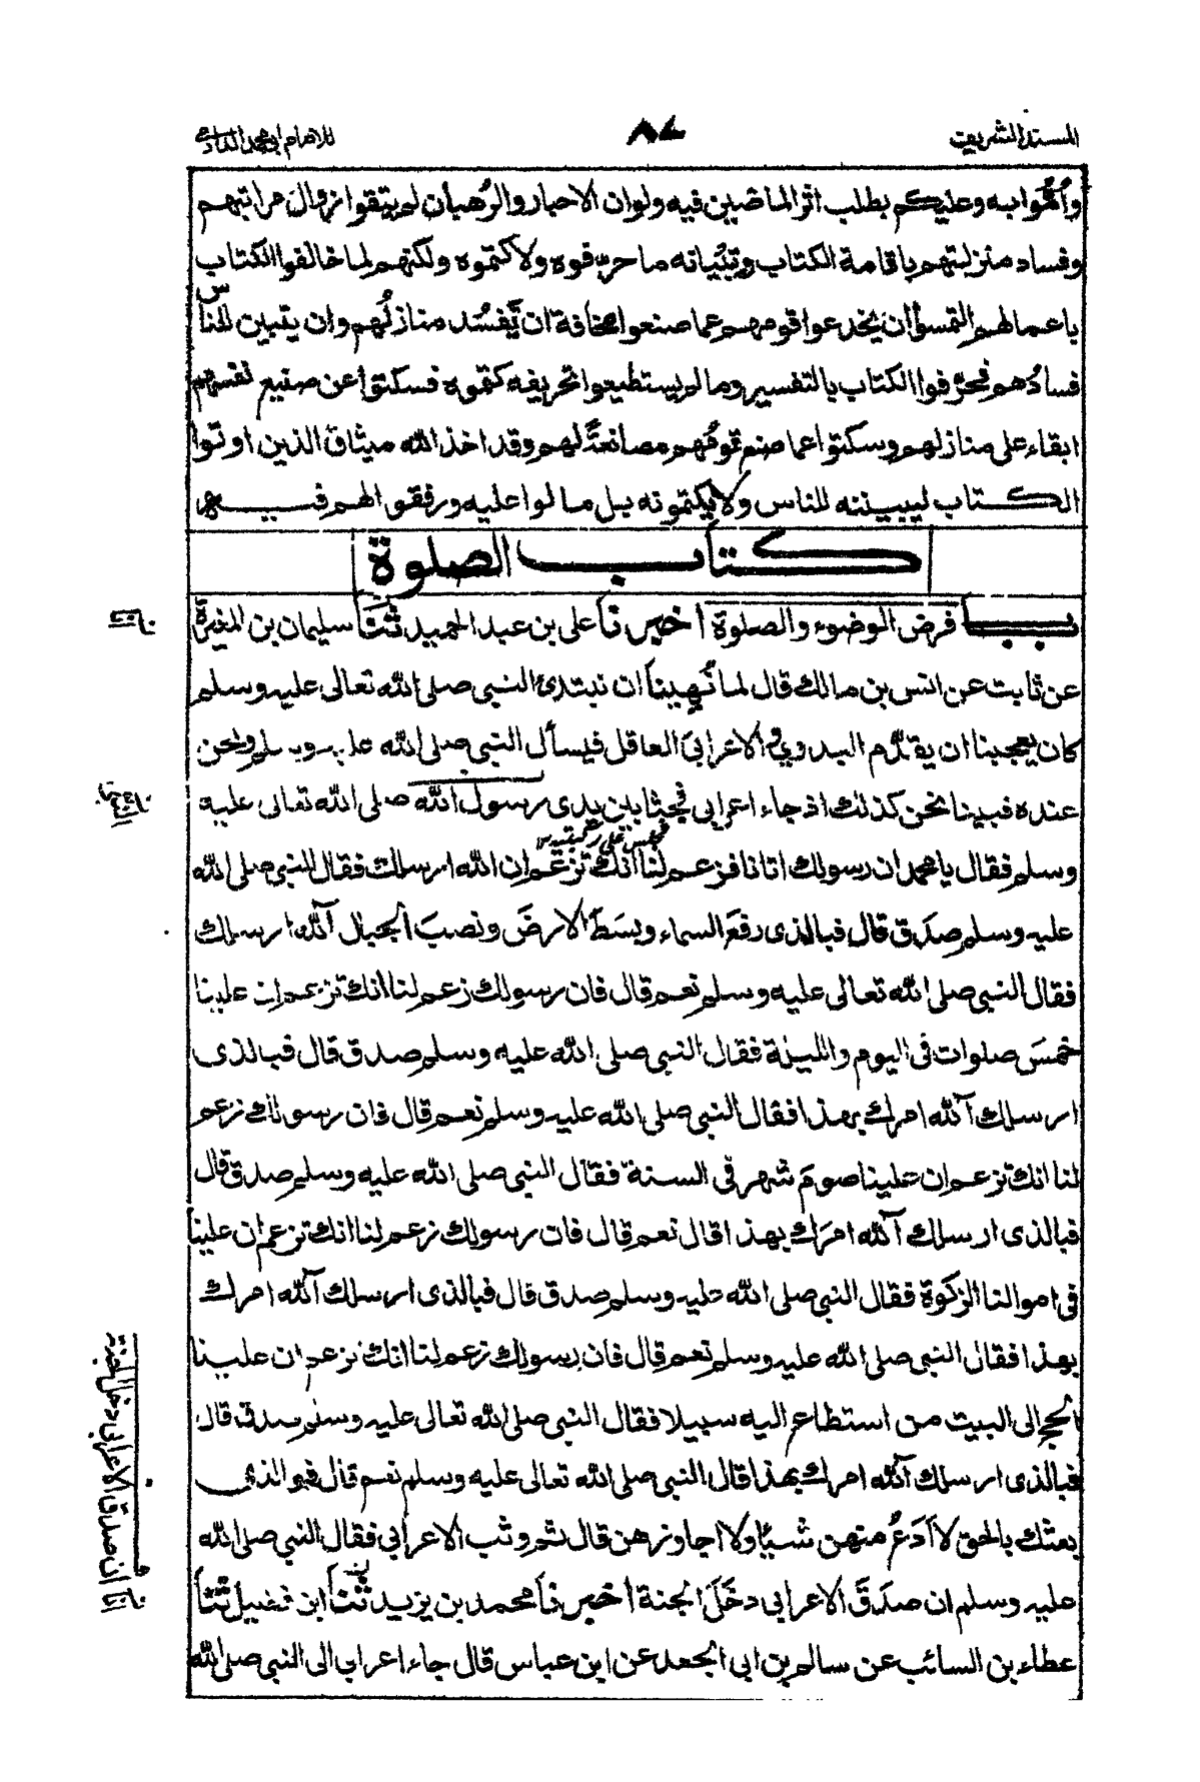 المسند الشريف
٨٧
للامام ابى محمد الدارمى
وأتموا به وعليكم بطلب اثر الماضين فيه ولوان الاحبار والرُهبان لم يتقوا زوالَ مراتبهم
وفساد منزلتهم باقامة الكتاب وتبيانه ما حرّفوه ولا كتموه ولكنهم لما خالفوا الكتاب
باعمالهم التمسوا ان يخدعوا قومهم عما صنعوا مخافة ان تَفسُد منازلُهم وان يتبين للناس
فسادُهم فحرّفوا الكتاب بالتفسير وما لم يستطيعوا تحريفه كتموه فسكتوا عن صنيع نفسهم
ابقاء على منازلهم وسكتوا عما صنع قومُهم مصانعةً لهم وقد اخذ الله ميثاق الذين اوتوا
الكتاب ليبيننه للناس ولا يكتمونه بل مالوا عليه ورفقوا لهم فيه
كتاب الصلوة
باب فرض الوضوء والصلوة اخبرنا على بن عبد الحميد ثنا سليمان بن المغيرة
عن ثابت عن انس بن مالك قال لما نُهينا ان نبتدئ النبى صلى الله تعالى عليه وسلم
كان يعجبنا ان يقدُم البدوي والاعرابى العاقل فيسأل النبى صلى الله عليه وسلم ونحن
عنده فبينا نحن كذلك اذ جاء اعرابى فجثا بين يدى رسول الله صلى الله تعالى عليه
جلس على ركبتيه
وسلم فقال يا محمد ان رسولك اتانا فزعم لنا انك تزعم ان الله ارسلك فقال النبى صلى الله
عليه وسلم صدَق قال فبالذى رفعَ السماء وبسَطَ الارضَ ونصبَ الجبال آلله ارسلك
فقال النبى صلى الله تعالى عليه وسلم نعم قال فان رسولك زعم لنا انك تزعم ان علينا
خمسَ صلوات فى اليوم والليلة فقال النبى صلى الله عليه وسلم صدق قال فبالذى
ارسلك آلله امرك بهذا فقال النبى صلى الله عليه وسلم نعم قال فان رسولك زعم
لنا انك تزعم ان علينا صومَ شهر فى السنة فقال النبى صلى الله عليه وسلم صدق قال
فبالذى ارسلك آلله امرَك بهذا قال نعم قال فان رسولك زعم لنا انك تزعم ان علينا
فى اموالنا الزكوة فقال النبى صلى الله عليه وسلم صدق قال فبالذى ارسلك آلله امرك
بهذا فقال النبى صلى الله عليه وسلم نعم قال فان رسولك زعم لنا انك تزعم ان علينا
الحج الى البيت من استطاع اليه سبيلا فقال النبى صلى الله تعالى عليه وسلم صدق قال
فبالذى ارسلك آلله امرك بهذا قال النبى صلى الله تعالى عليه وسلم نعم قال فوالذى
بعثك بالحق لا أدَعُ منهن شيئا ولا اجاوزهن قال ثم وثب الاعرابى فقال النبى صلى الله
عليه وسلم ان صدَقَ الاعرابى دخَلَ الجنة اخبرنا محمد بن يزيد ثنا ابن فضيل ثنا
عطاء بن السائب عن سالم بن ابى الجعد عن ابن عباس قال جاء اعرابى الى النبى صلى الله
ان صدق الاعرابى دخل الجنة